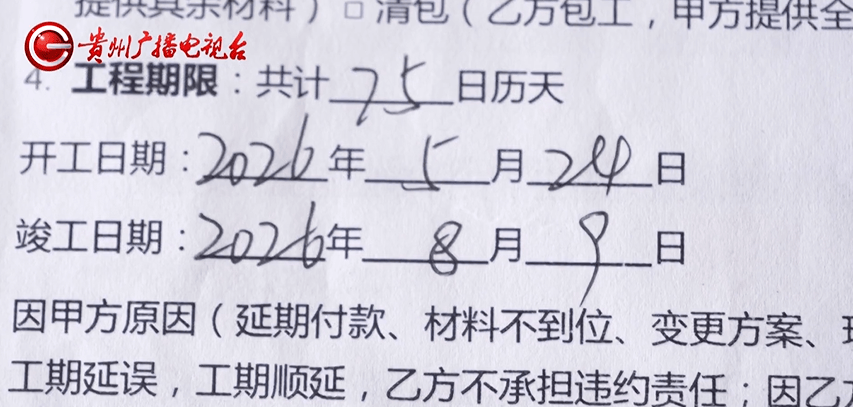 提供其余材料）□ 清包（乙方包工，甲方提供全
贵州广播电视台
4. 工程期限：共计75日历天
开工日期：2026年5月24日
竣工日期：2026年8月9日
因甲方原因（延期付款、材料不到位、变更方案、
工期延误，工期顺延，乙方不承担违约责任；因乙